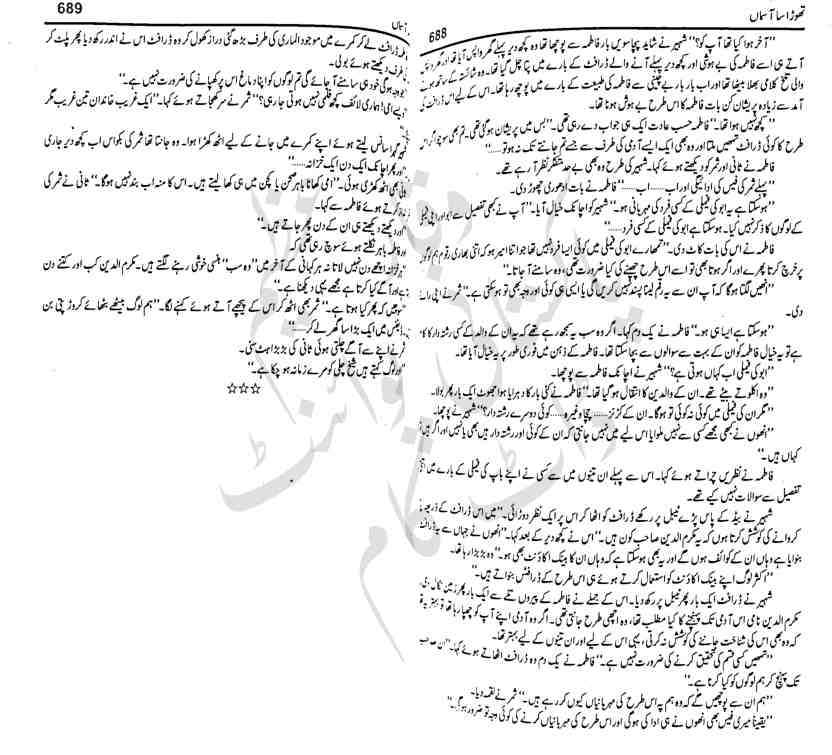 تھوڑا سا آسماں
688
"آخر ہوا کیا تھا آپ کو؟" شہیر نے شاید پچاسویں بار فاطمہ سے پوچھا تھا وہ کچھ دیر پہلے گھر واپس آیا تھا اور
آتے ہی اسے فاطمہ کی بے ہوشی اور کچھ دیر پہلے آنے والے ڈرافٹ کے بارے میں پتا چل گیا تھا۔ وہ شائستہ کے ساتھ ہونے
والی تلخ کلامی بھلا بیٹھا تھا اور اب بار بار بے چینی سے فاطمہ کی طبیعت کے بارے میں پوچھ رہا تھا۔ اس کے لیے اس ڈرافٹ کی
آمد سے زیادہ پریشان کن بات فاطمہ کا اس طرح بے ہوش ہونا تھا۔
"کچھ نہیں ہوا تھا۔" فاطمہ حسب عادت ایک ہی جواب دے رہی تھی۔ "بس میں پریشان ہو گئی تھی۔ تم بھی سوچو اگر اس
طرح کا کوئی ڈرافٹ تمھیں ملتا اور وہ بھی ایک ایسے آدمی کی طرف سے جسے تم جانتے تک نہ ہو تو......"
فاطمہ نے ثانی اور ثمر کو دیکھتے ہوئے کہا۔ شہیر کی طرح وہ بھی بے حد متفکر نظر آ رہے تھے۔
"پہلے ثمر کی فیس کی ادائیگی اور اب...... اب......" فاطمہ نے بات ادھوری چھوڑ دی۔
"ہو سکتا ہے یہ ابو کی فیملی کے کسی فرد کی مہربانی ہو۔" شہیر کو اچانک خیال آیا۔ "آپ نے کبھی تفصیل سے ابو اور اپنی فیملی
کے لوگوں کا ذکر نہیں کیا۔ ہو سکتا ہے ابو کی فیملی کے کسی فرد......"
فاطمہ نے اس کی بات کاٹ دی۔ "تمھارے ابو کی فیملی میں کوئی ایسا فرد نہیں تھا جو اتنا امیر ہو کہ اتنی بھاری رقوم ہم لوگوں
پر خرچ کرتا پھرے اور اگر ہوتا بھی تو اسے اس طرح چھپنے کی کیا ضرورت تھی، وہ سامنے آ جاتا۔"
"انھیں لگتا ہو گا کہ آپ ان سے یہ رقم لینا پسند نہیں کریں گی یا ایسی ہی کوئی اور وجہ بھی تو ہو سکتی ہے۔" ثمر نے اپنی رائے
دی۔
"ہو سکتا ہے ایسا ہی ہو۔" فاطمہ نے یک دم کہا۔ اگر وہ سب یہ سمجھ رہے تھے کہ یہ ان کے والد کے کسی رشتہ دار کا کام
ہے تو یہ خیال فاطمہ کو ان کے بہت سے سوالوں سے بچا سکتا تھا۔ فاطمہ کے ذہن میں فوری طور پر یہ خیال آیا تھا۔
"ابو کی فیملی اب کہاں ہوتی ہے؟" شہیر نے اچانک فاطمہ سے پوچھا۔
"وہ اکلوتے بیٹے تھے۔ ان کے والدین کا انتقال ہو گیا تھا۔" فاطمہ نے کئی بار کا دہرایا ہوا جھوٹ ایک بار پھر بولا۔
"مگر ان کی فیملی میں کوئی نہ کوئی تو ہو گا۔ ان کے کزنز...... چچا وغیرہ...... کوئی دوسرے رشتہ دار؟" شہیر نے پوچھا۔
"انھوں نے کبھی مجھے کسی سے نہیں ملوایا اس لیے میں نہیں جانتی کہ ان کے کوئی اور رشتہ دار ہیں بھی یا نہیں اور اگر ہیں تو
کہاں ہیں۔"
فاطمہ نے نظریں چراتے ہوئے کہا۔ اس سے پہلے ان تینوں میں سے کسی نے اپنے باپ کی فیملی کے بارے میں اتنی
تفصیل سے سوالات نہیں کیے تھے۔
شہیر نے بیڈ کے پاس پڑے ٹیبل پر رکھے ڈرافٹ کو اٹھا کر اس پر ایک نظر دوڑائی۔ "میں اس ڈرافٹ کے ذریعے
کروانے کی کوشش کرتا ہوں کہ یہ مکرم الدین صاحب کون ہیں۔" اس نے کچھ دیر کے بعد کہا۔ "انھوں نے جہاں سے یہ ڈرافٹ
بنوایا ہے وہاں ان کے کوائف ہوں گے اور یہ بھی ہو سکتا ہے کہ وہاں ان کا بینک اکاؤنٹ بھی ہو۔" وہ بڑبڑا رہا تھا۔
"اکثر لوگ اپنے بینک اکاؤنٹ کو استعمال کرتے ہوئے ہی اس طرح کے ڈرافٹس بنواتے ہیں۔"
شہیر نے ڈرافٹ ایک بار پھر ٹیبل پر رکھ دیا۔ اس کے جملے نے فاطمہ کے پیروں تلے سے ایک بار پھر زمین نکال دی
مکرم الدین نامی اس آدمی تک پہنچنے کا کیا مطلب تھا، وہ اچھی طرح جانتی تھی۔ اگر وہ آدمی اپنے آپ کو چھپا رہا تھا تو بہتر یہ تھا
کہ وہ بھی اس کی شناخت جاننے کی کوشش نہ کرتی، یہی اس کے لیے اور ان تینوں کے لیے بہتر تھا۔
"تمھیں کسی قسم کی تحقیق کرنے کی ضرورت نہیں ہے۔" فاطمہ نے یک دم وہ ڈرافٹ اٹھاتے ہوئے کہا۔ "ان صاحب
تک پہنچ کر ہم لوگوں کو کیا کرنا ہے۔"
"ہم ان سے پوچھیں گے کہ وہ ہم پہ اس طرح کی مہربانیاں کیوں کر رہے ہیں۔" ثمر نے لقمہ دیا۔
"یقیناً میری فیس بھی انھوں نے ہی ادا کی ہو گی اور اس طرح کی مہربانیاں کرنے کی کوئی وجہ تو ضرور ہو گی۔"
689
ڈرافٹ لے کر کمرے میں موجود الماری کی طرف بڑھ گئی دراز کھول کر وہ ڈرافٹ اس نے اندر رکھ دیا پھر پلٹ کر
طرف دیکھتے ہوئے بولی۔
وجہ ہو گی خود ہی سامنے آ جائے گی تم لوگوں کو اپنا دماغ اس پر کھپانے کی ضرورت نہیں ہے۔"
ویسے امی! ہماری لائف کچھ فلمی نہیں ہوتی جا رہی؟" ثمر نے سر کھجاتے ہوئے کہا۔ "ایک غریب خاندان تین غریب مگر
سانس لیتے ہوئے اپنے کمرے میں جانے کے لیے اٹھ کھڑا ہوا۔ وہ جانتا تھا ثمر کی بکواس اب کچھ دیر جاری
اور پھر اچانک ایک دن ایک خزانہ......"
بھی اٹھ کھڑی ہوئی۔ "امی کھانا باہر صحن یا کچن میں ہی کھا لیتے ہیں۔ اس کا منہ اب بند نہیں ہو گا۔" ثانی نے ثمر کی
کرتے ہوئے فاطمہ سے کہا۔
اور دیکھتے دیکھتے ہی ان کے دن پھر جاتے ہیں۔"
فاطمہ باہر نکلتے ہوئے سوچ رہی تھی کہ
ہر خزانہ اچھے دن نہیں لاتا نہ ہر کہانی کے آخر میں "وہ سب" ہنسی خوشی رہنے لگتے ہیں۔ مکرم الدین کب اور کتنے دن
اور آگے کیا کرتا ہے مجھے یہی دیکھنا ہے۔"
کہ پھر کیا ہوتا ہے۔" ثمر بھی اٹھ کر اس کے پیچھے آتے ہوئے کہنے لگا۔ "ہم لوگ بیٹھے بٹھائے کروڑ پتی بن
ڈیفنس میں ایک بڑا سا گھر لے کر......"
نے اپنے سے آگے چلتی ہوئی ثانی کی بڑبڑاہٹ سنی۔
"اور لوگ کہتے ہیں شیخ چلی کو مرے زمانہ ہو چکا ہے۔"
☆☆☆